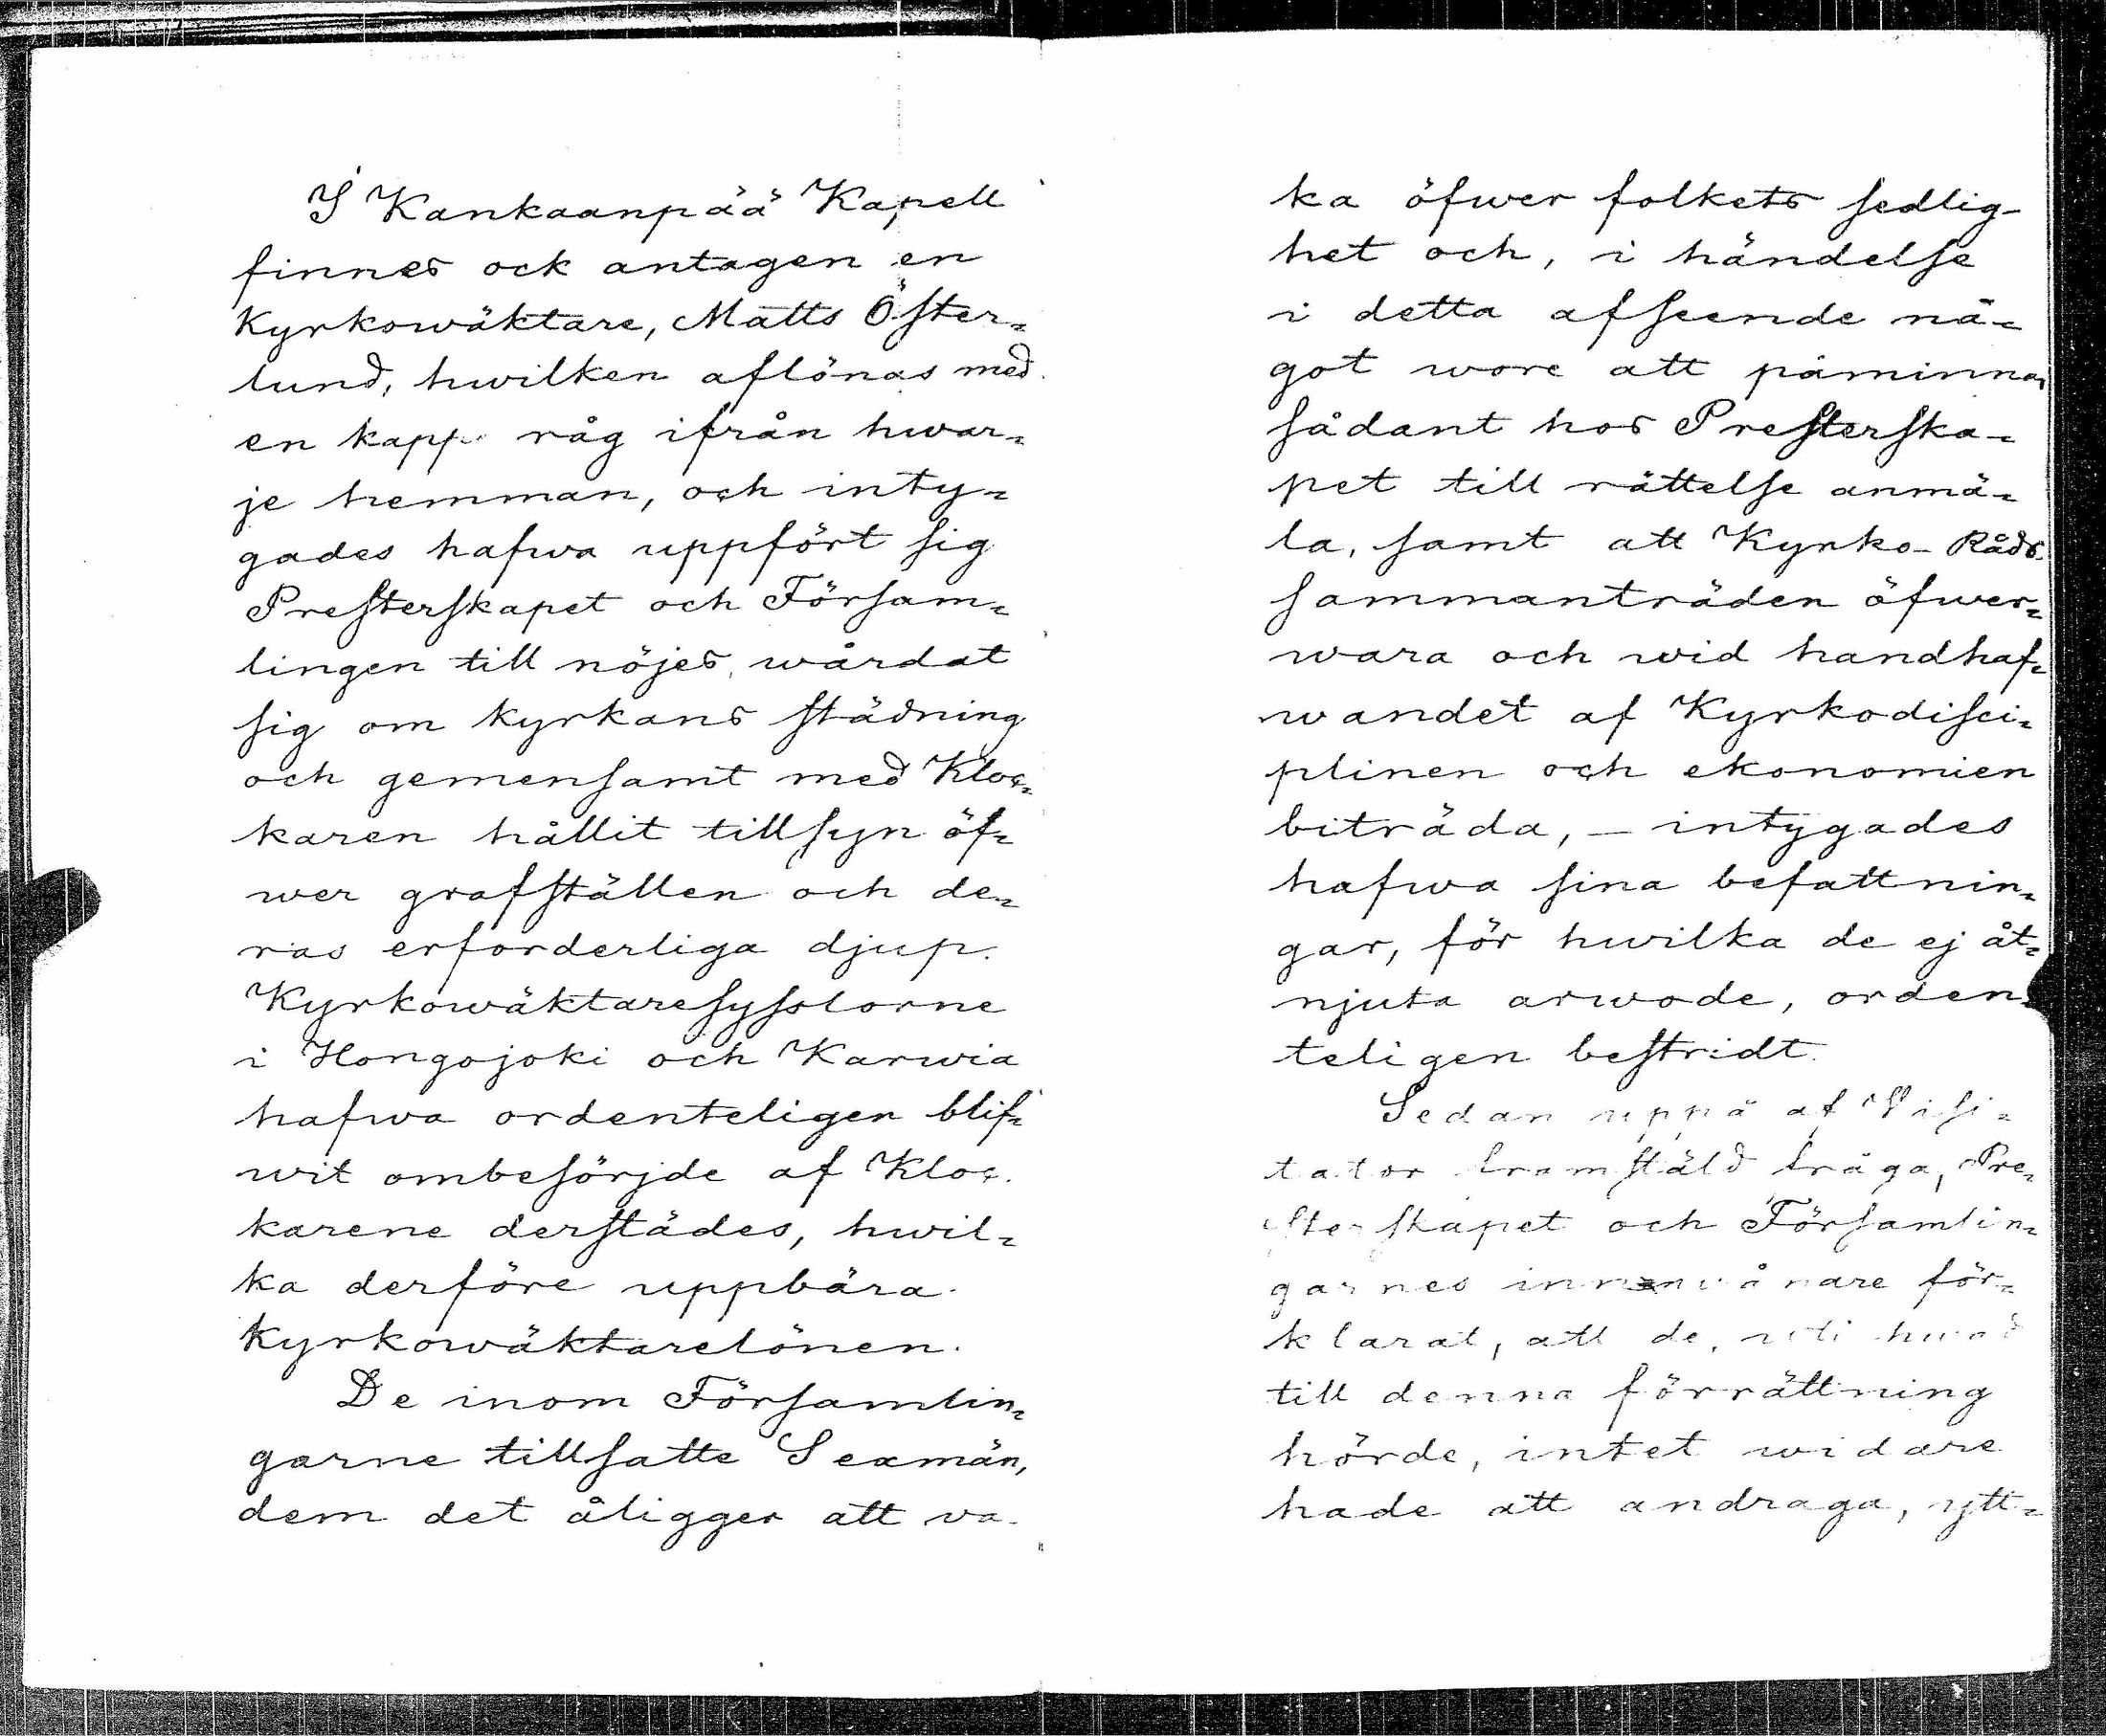 I Kankaanpää Kapell
finnes ock antagen en
Kyrkowäktare, Matts Öster=
lund, hwilken aflönas med
en kapp råg ifrån hwar=
je hemman, och inty=
gades hafwa uppfört sig
Presterskapet och Försam=
lingen till nöjes, wårdat
sig om kyrkans städning
och gemensamt med Kloc=
karen hållit tillsyn öf=
wer grafställen och de=
ras erforderliga djup.
Kyrkowäktaresysslorne
i Hongojoki och Karwia
hafwa ordenteligen blif=
wit ombesörjde af Kloc.
karene derstädes, hwil=
ka derföre uppbära
Kyrkowäktarelönen.
De inom Församlin=
garne tillsatte Sexmän,
dem det åligger att va-
ka öfwer folkets sedlig-
het och, i händelse
i detta afseende nå=
got wore att påminna,
sådant hos Presterska=
pet till rättelse anmä=
la, samt att Kyrko-Råds-
sammanträden öfwer=
wara och wid handhaf=
wandet af Kyrkodisci=
plinen och ekonomien
biträda, — intygades
hafwa sina befattnin=
gar, för hwilka de ej åt=
njuta arwode, orden=
teligen bestridt.
Sedan uppå af Visi=
tator framstäld fråga, Pre=
sterskapet och Församlin=
garnes innewånare för=
klarat, att de, uti hwad
till denna förrättning
hörde, intet widare
hade att andraga, ytt=